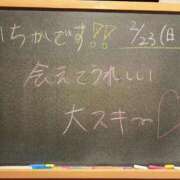 いちかです!! 2/23(日
会えてうれしい
大スキ〜♡